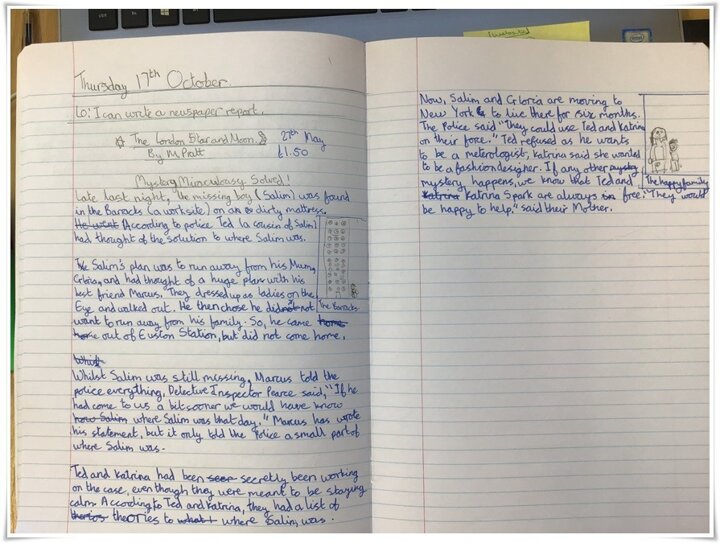 Thursday 17th October
Lo: I can write a newspaper report.
The London Star and Moon
27th May
By M. Pratt
£1.50
Mystery Solved!
Late last night, the missing boy (Salim) was found
in the Baracks (a work site) on an dirty mattress.
He went According to police Ted (a cousin of Salim)
had thought of the solution to where Salim was.
Salim's plan was to run away from his Mum,
Gloria, and had thought of a huge plan with his
best friend Marcus. They dressed up as ladies on the
Eye and walked out. He then chose he did not
want to run away from his family. So, he came home
out of Euston Station, but did not come home.
The Baracks
Whilst
Whilst Salim was still missing, Marcus told the
police everything. Detective Inspector Pearce said, "If he
had come to us a bit sooner we would have know
how Salim where Salim was that day." Marcus has wrote
his statement, but it only told the Police a small part of
where Salim was.
Ted and Katrina had been secretly been working
on the case, even though they were meant to be staying
calm. According to Ted and Katrina, they had a list of
theories to what where Salim, was.
Now, Salim and Gloria are moving to
New York to live there for six months.
The Police said "They could use Ted and Katrina
on their force." Ted refused as he wants
to be a meterologist, Katrina said she wanted
to be a fashion designer. If any other mystey
mystery happens, we know that Ted and
Katrina Katrina Spark are always free. "They would
be happy to help," said their Mother.
The happy family
intel